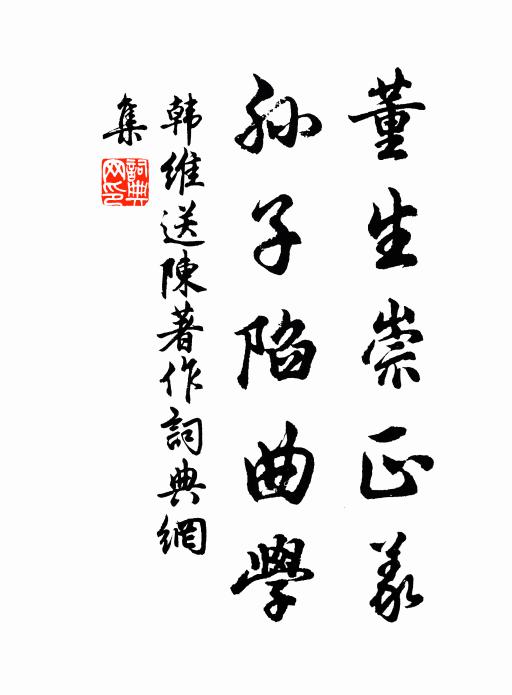 董生崇正義
孫子陷曲學
韓維送陳著作詞典網
集
詞典
网印